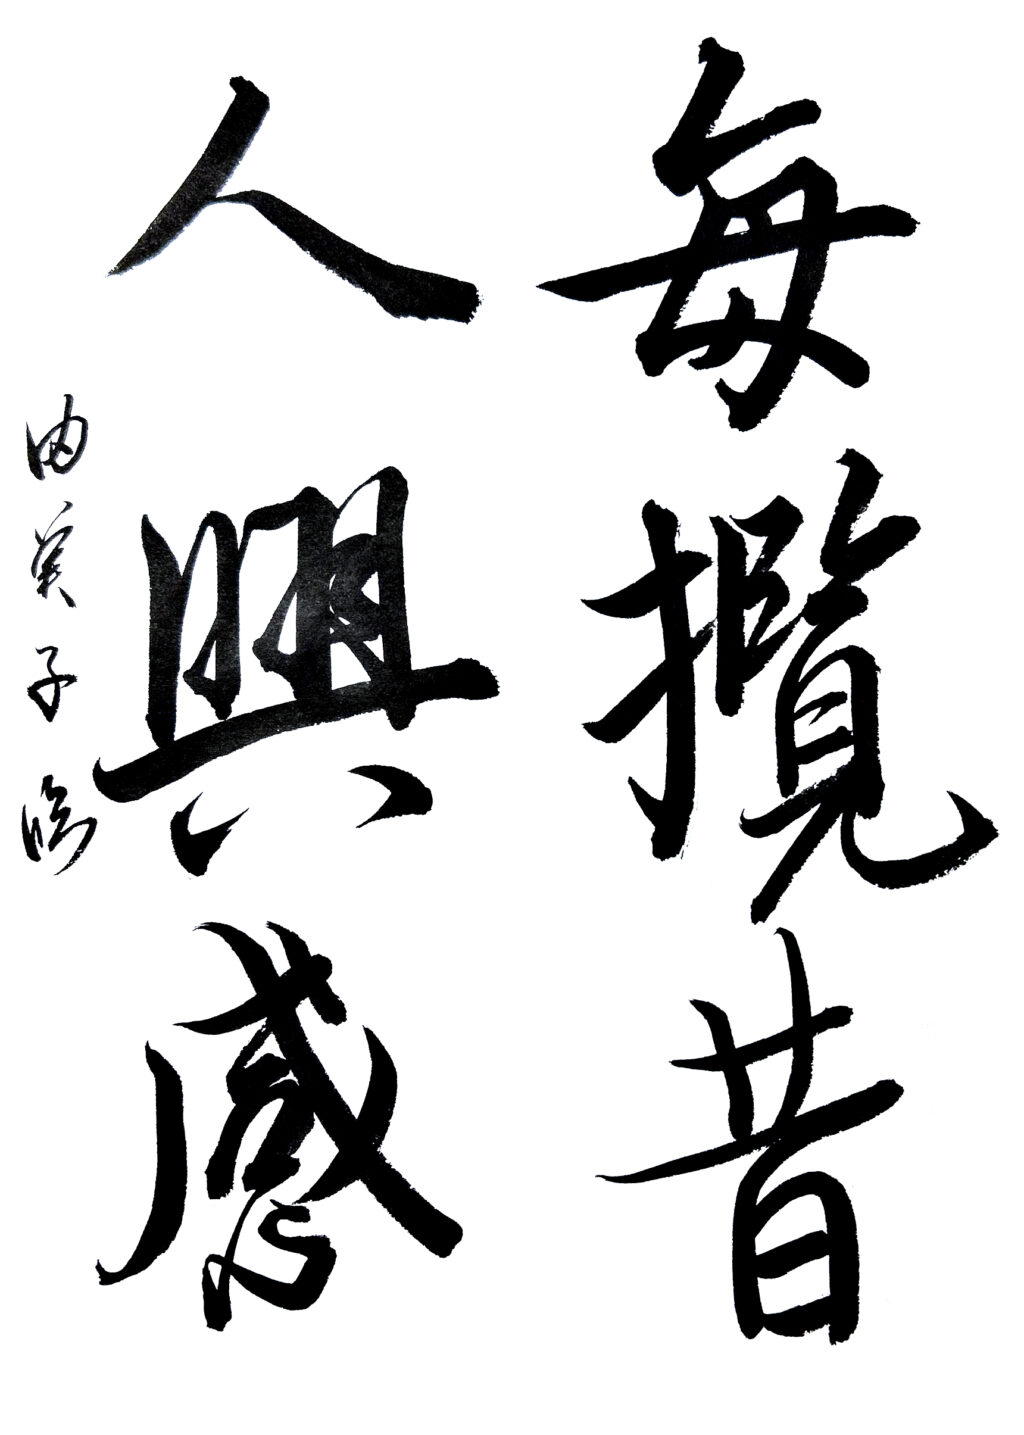 每攬昔
人興感
由美子臨